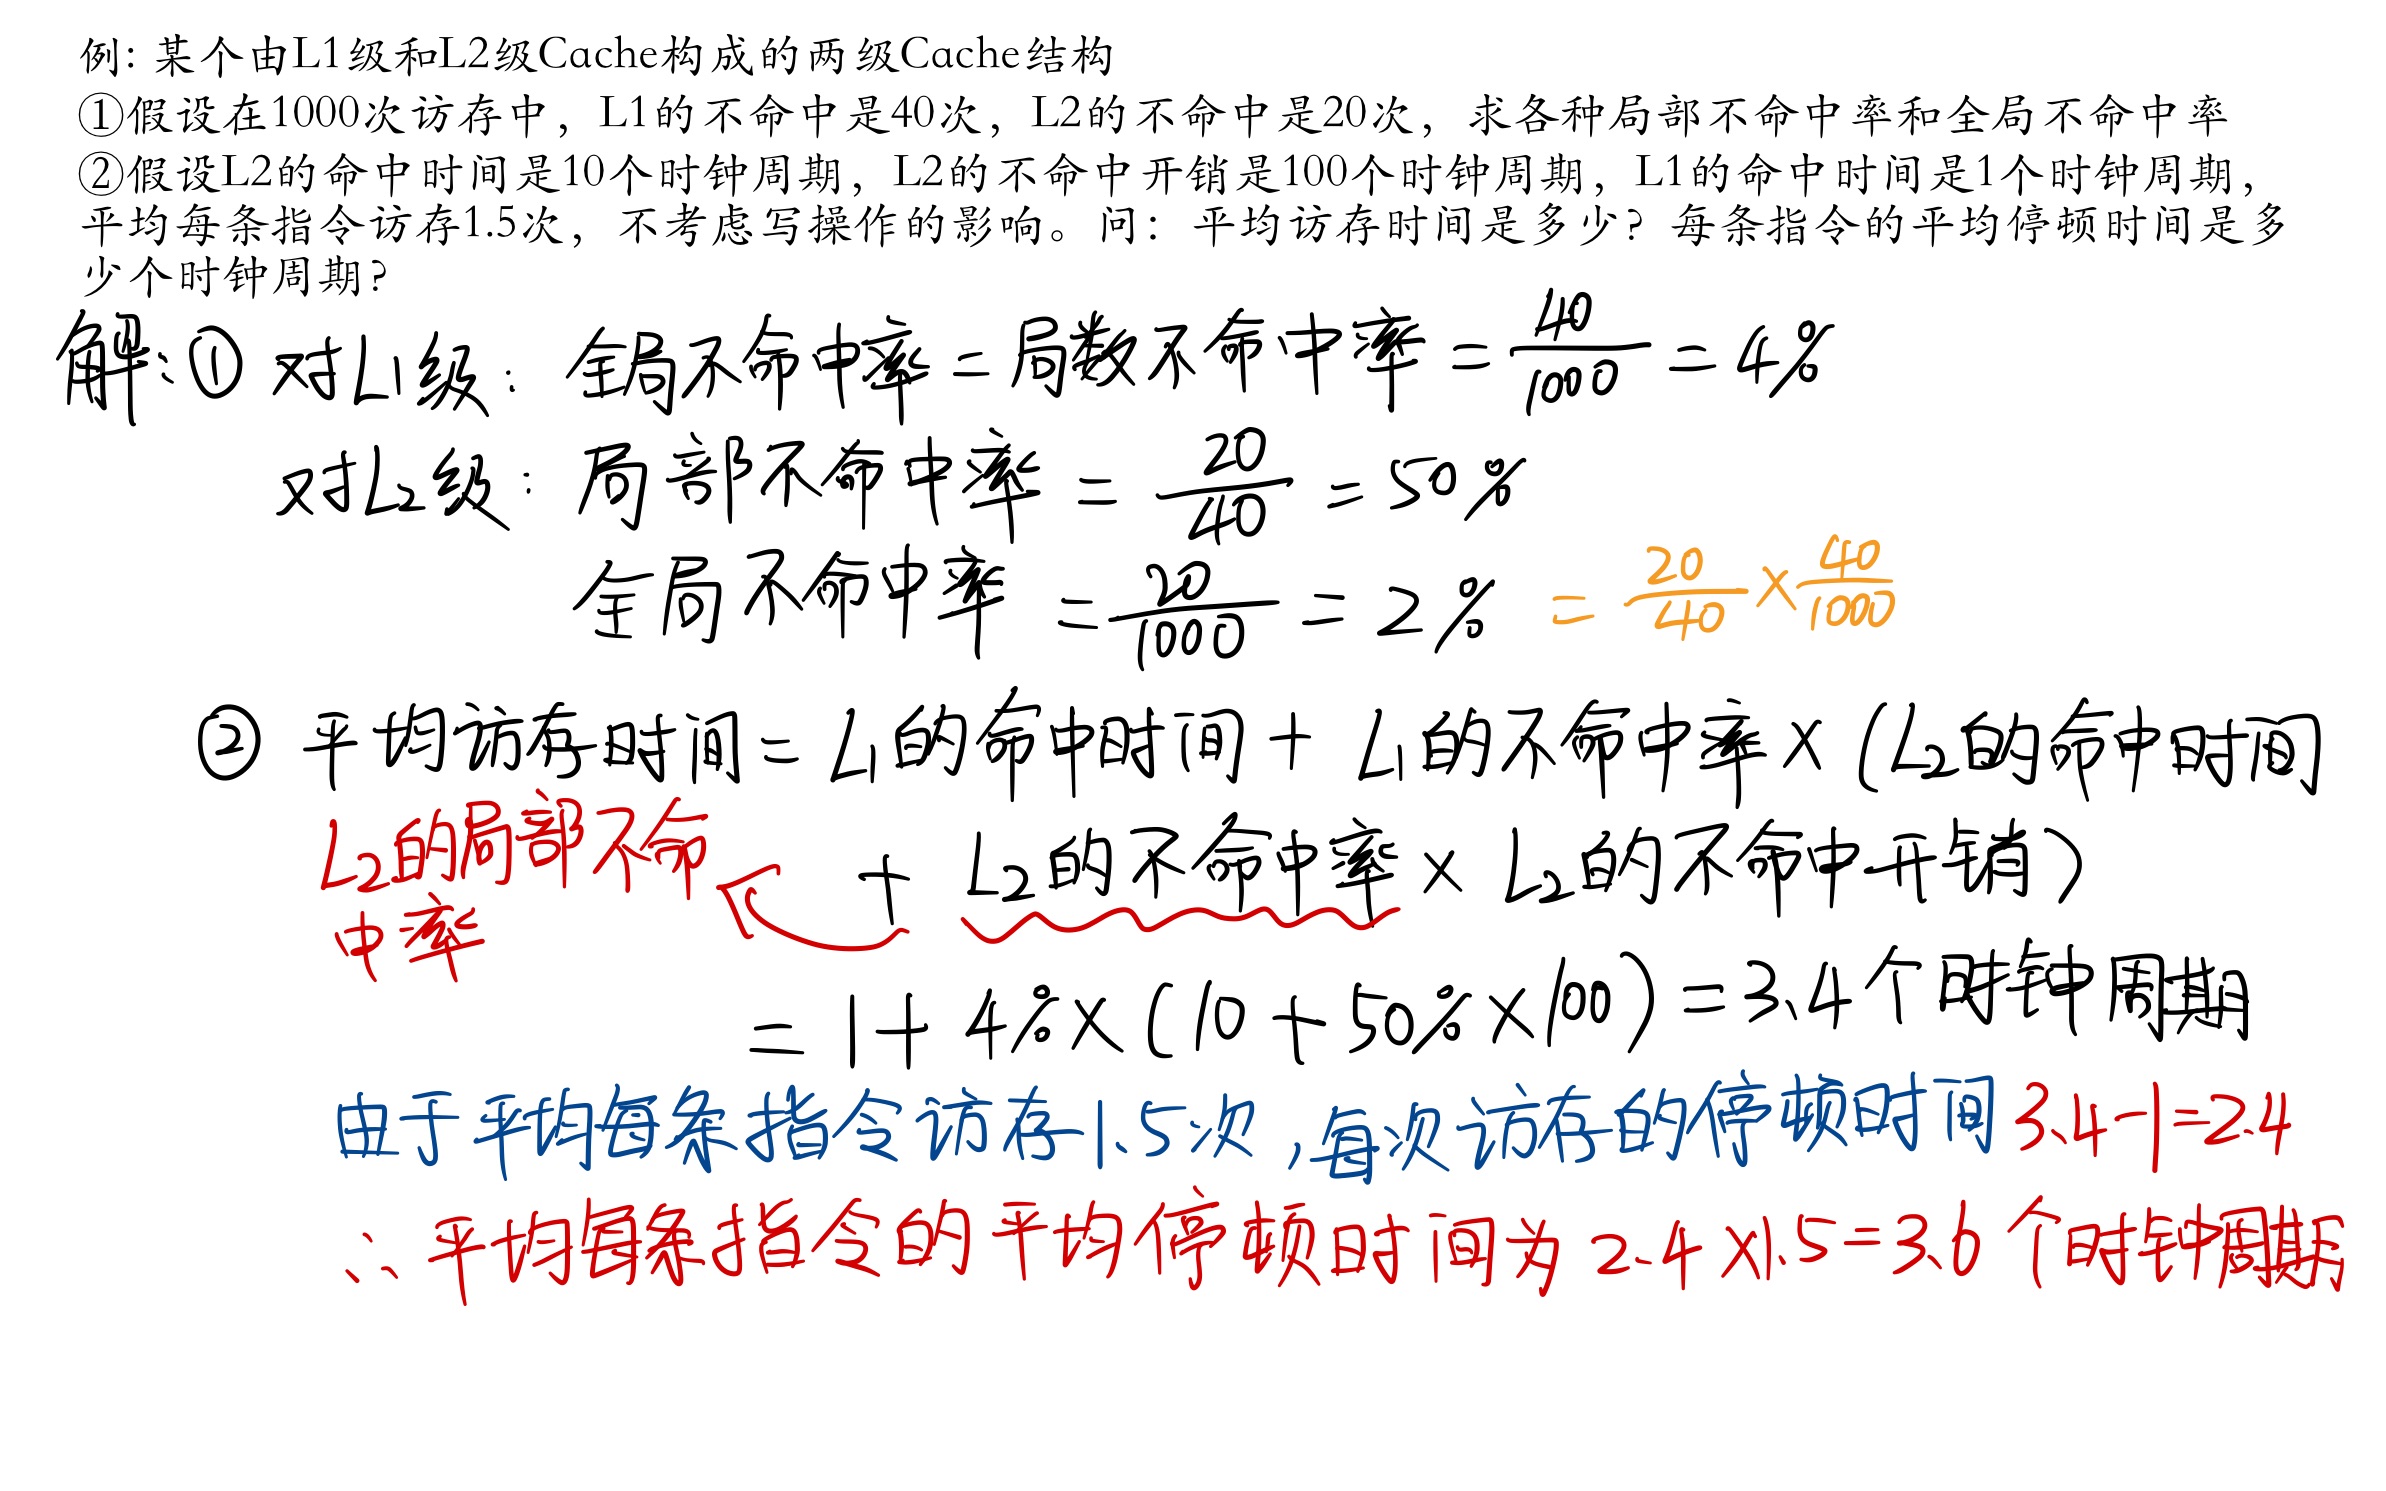 例：某个由L1级和L2级Cache构成的两级Cache结构
①假设在1000次访存中，L1的不命中是40次，L2的不命中是20次，求各种局部不命中率和全局不命中率
②假设L2的命中时间是10个时钟周期，L2的不命中开销是100个时钟周期，L1的命中时间是1个时钟周期，
平均每条指令访存1.5次，不考虑写操作的影响。问：平均访存时间是多少？每条指令的平均停顿时间是多
少个时钟周期？
解:① 对L1级： 全局不命中率 = 局数不命中率 = 40/1000 = 4%
对L2级： 局部不命中率 = 20/40 = 50%
全局不命中率 = 20/1000 = 2% = 20/40 × 40/1000
② 平均访存时间 = L1的命中时间 + L1的不命中率 × (L2的命中时间
+ L2的不命中率 × L2的不命中开销)
L2的局部不命
中率
= 1 + 4% × (10 + 50% × 100) = 3.4个时钟周期
由于平均每条指令访存1.5次,每次访存的停顿时间 3.4-1=2.4
∴平均每条指令的平均停顿时间为 2.4×1.5=3.6 个时钟周期